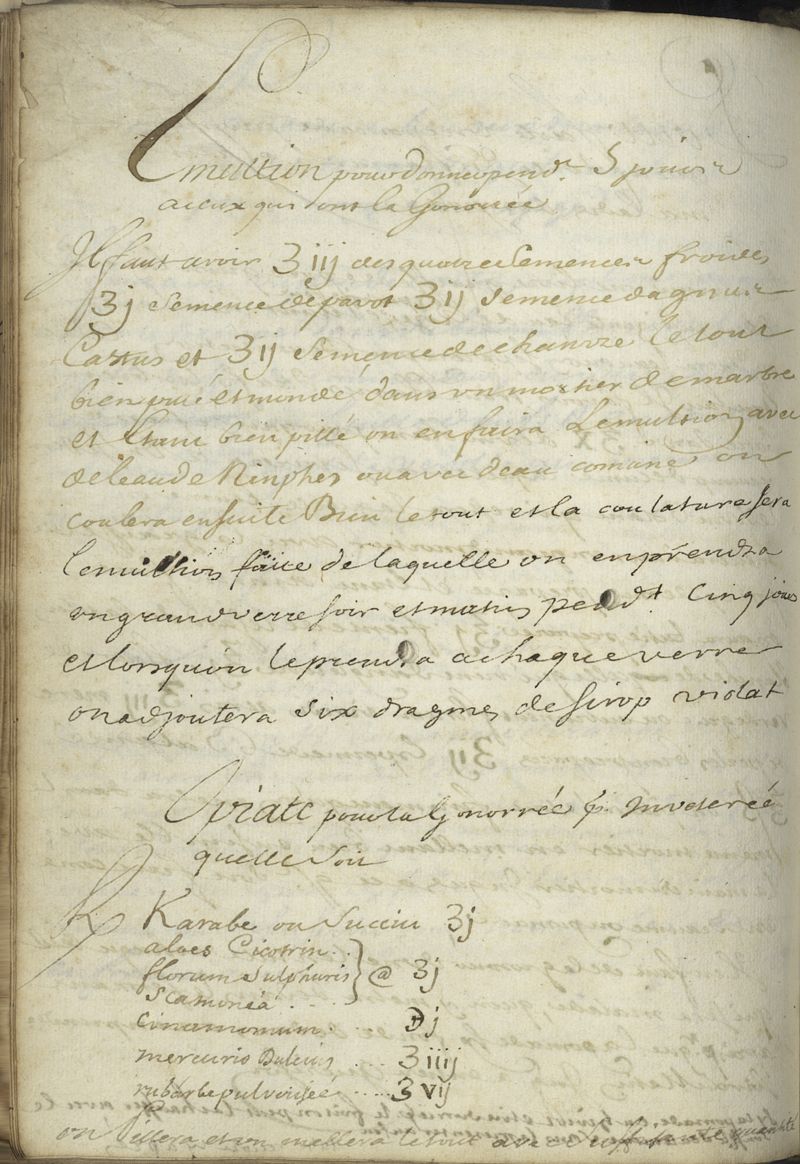 Emultion pour donner pend.t 5 jours
a ceux qui ont la Gonorrée
Il faut avoir ʒ iij des quatre Semences froides
ʒj Semence de pavot ʒij Semence d agnus
Castus et ʒij Semence de chanvre le tout
bien pilé et mondé dans un mortier de marbre
et Etant bien pillé on en faira Lemultion avec
de leau de Ninphes ou avec deau comune on
coulera ensuite Bien le tout et la coulature sera
lemultion faite de laquelle on en prendra
un grand verre soir et matin pend.t Cinq jours
et lorsquon le prendra a chaque verre
on adjoutera six dragmes de sirop violat
Opiate pour la gonorrée p. Inveterée
quelle Soit
℞ Karabe ou Succin ʒj
aloes Cicotrin
florum Sulphuris @ ʒj
Scamonéa
cinamomum ℈j
mercurio Dulcius ʒ iiij
rubarbe pulverisée ʒ vij
on pillera et on mellera le tout avec suffisante quantité